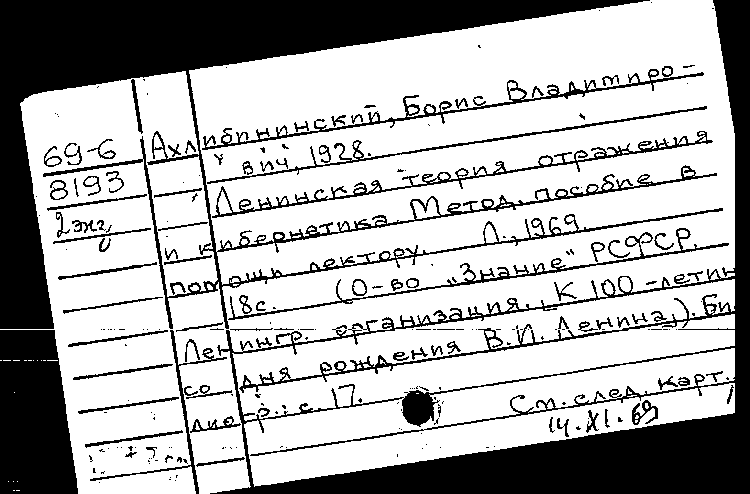 69-6
8193
2 экз
Ахлибининский, Борис Владимиро-
вич, 1928.
Ленинская теория отражения
и кибернетика. Метод. пособие в
помощь лектору. Л., 1969.
18с. (О-во „Знание" РСФСР.
Ленингр. организация. „К 100-летию
со дня рождения В.И. Ленина„). Биб
лиогр.: с. 17.
См. след. карт.
14.XI.69